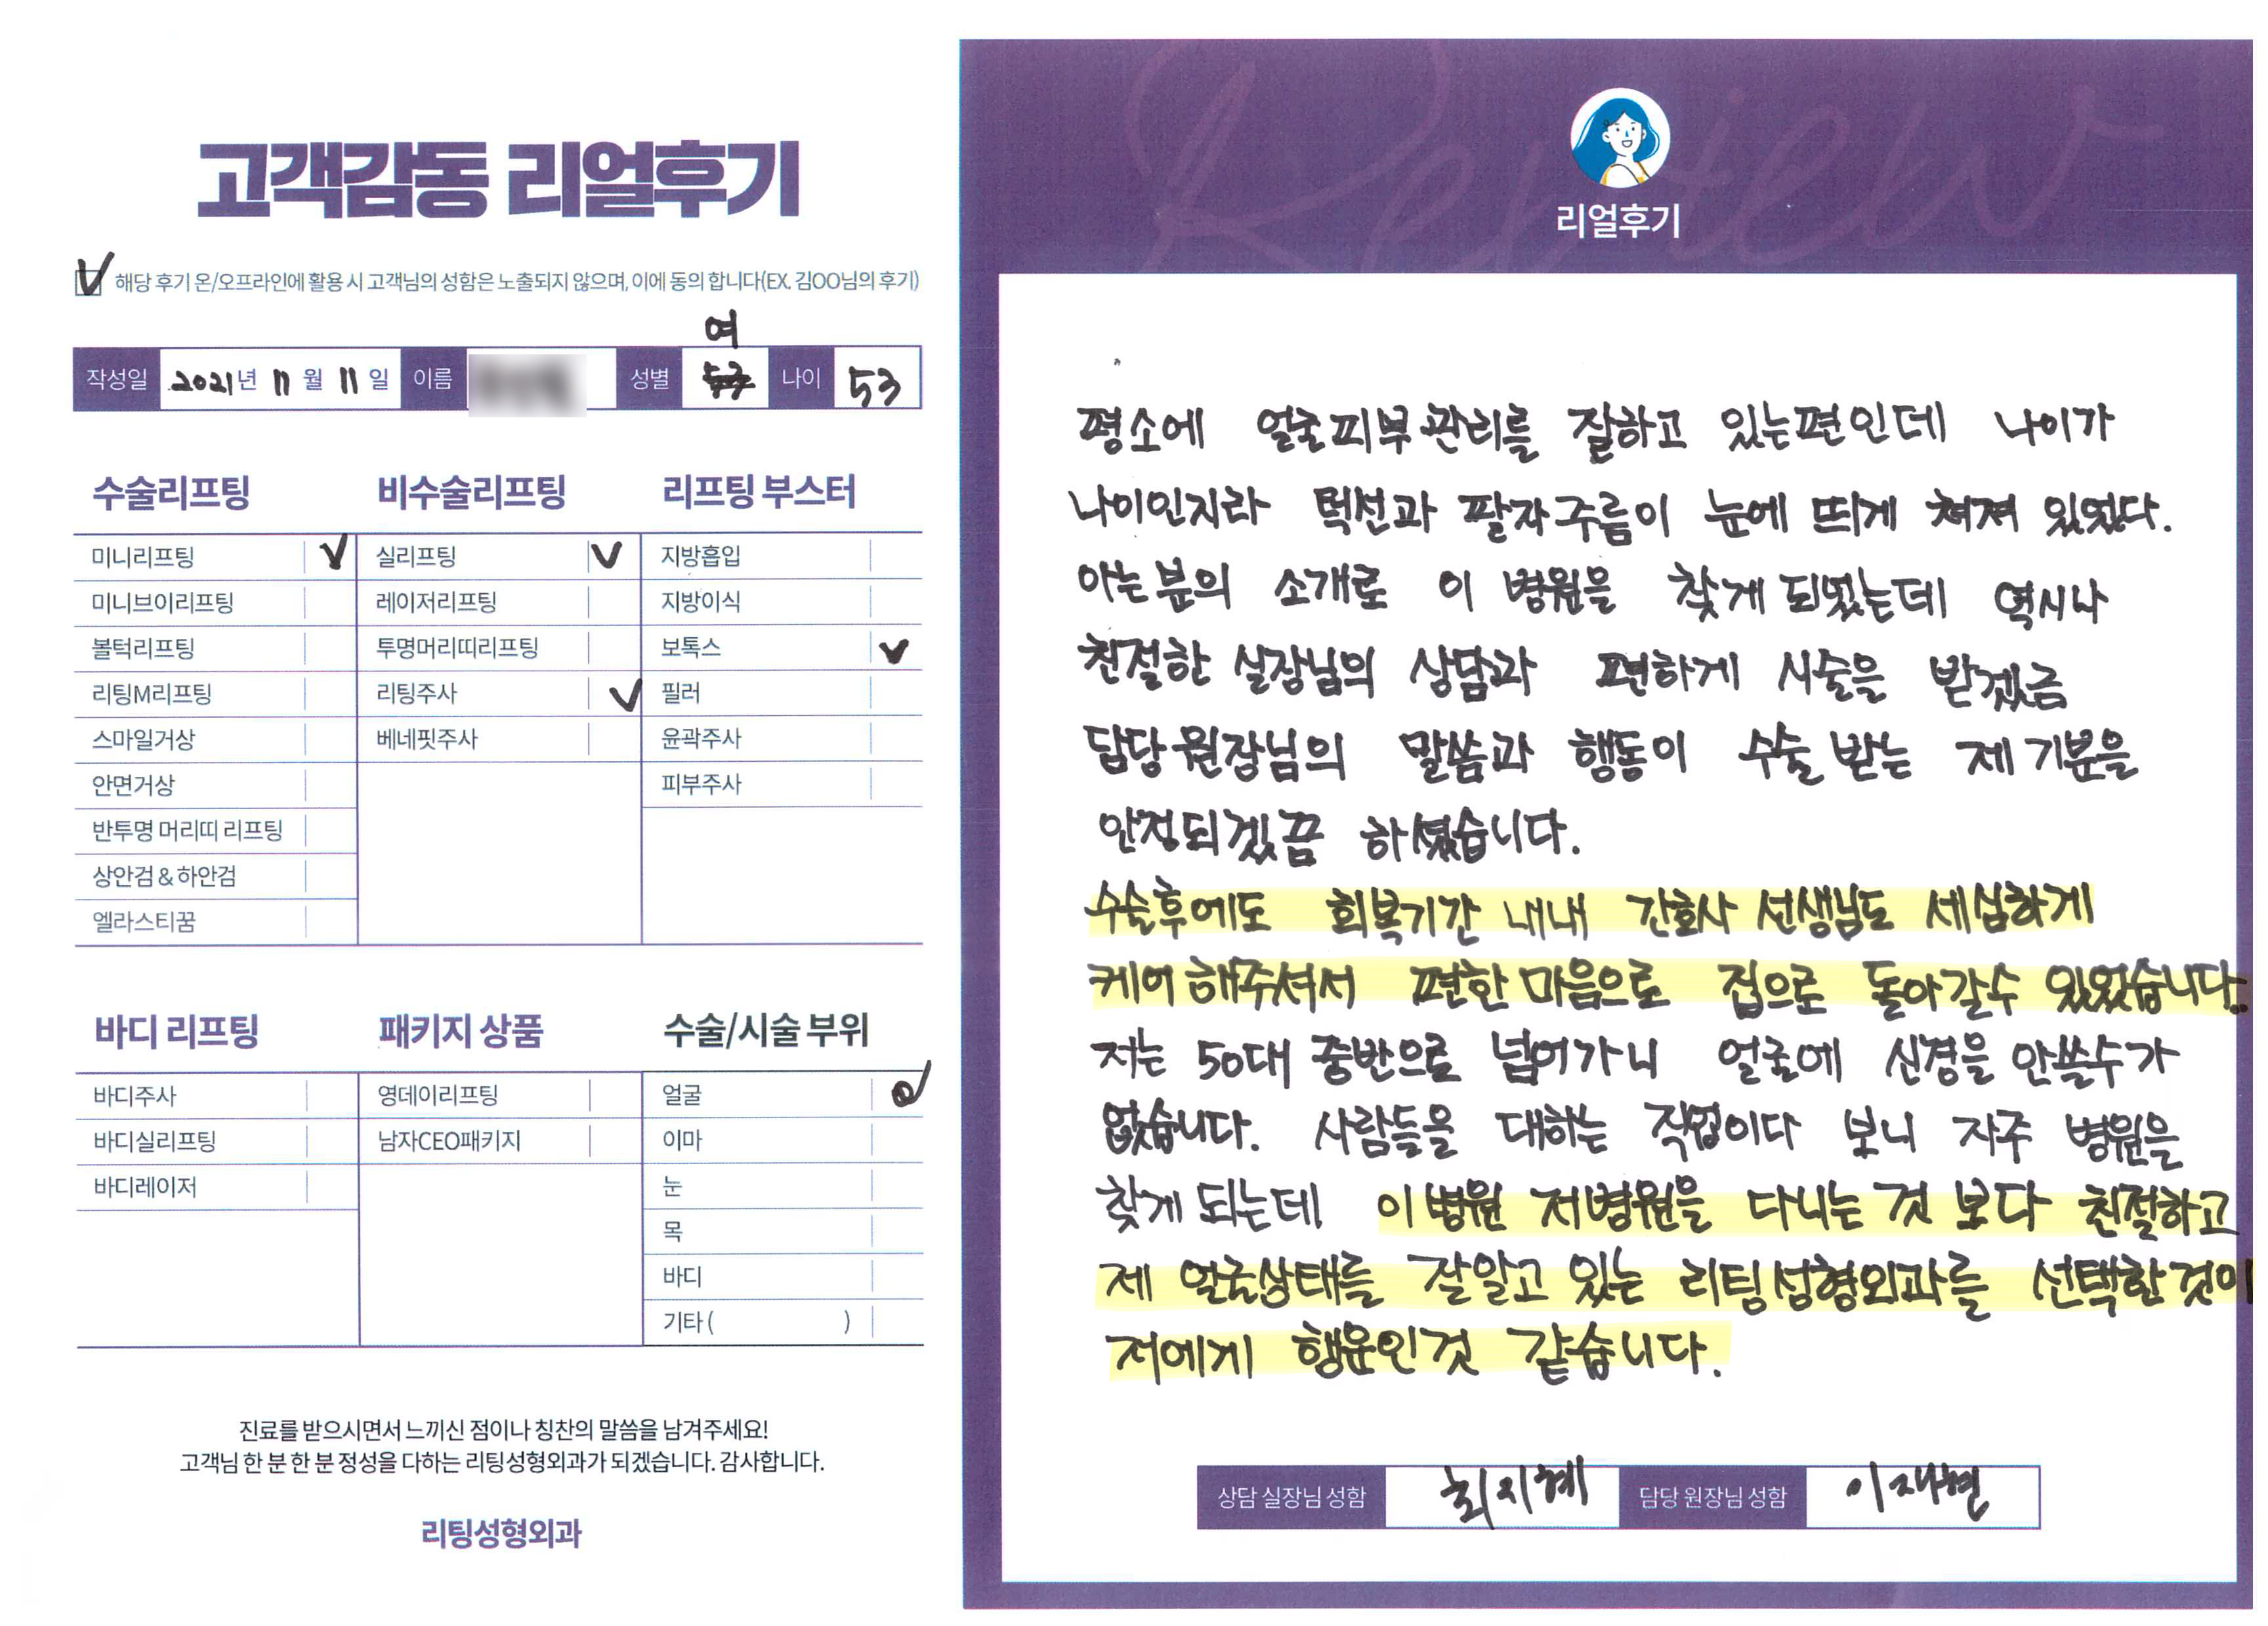 고객감동 리얼후기
해당 후기 온/오프라인에 활용 시 고객님의 성함은 노출되지 않으며, 이에 동의 합니다(EX. 김OO님의 후기)
여
작성일 2021년 11월 11일 이름 성별 나이 53
수술리프팅 비수술리프팅 리프팅 부스터
미니리프팅 실리프팅 지방흡입
미니브이리프팅 레이저리프팅 지방이식
볼턱리프팅 투명머리띠리프팅 보톡스
리팅M리프팅 리팅주사 필러
스마일거상 베네핏주사 윤곽주사
안면거상 피부주사
반투명 머리띠 리프팅
상안검 & 하안검
엘라스티꿈
바디 리프팅 패키지 상품 수술/시술 부위
바디주사 영데이리프팅 얼굴
바디실리프팅 남자CEO패키지 이마
바디레이저 눈
목
바디
기타 ( )
진료를 받으시면서 느끼신 점이나 칭찬의 말씀을 남겨주세요!
고객님 한 분 한 분 정성을 다하는 리팅성형외과가 되겠습니다. 감사합니다.
리팅성형외과
Review
리얼후기
평소에 얼굴피부관리를 잘하고 있는편인데 나이가
나이인지라 턱선과 팔자주름이 눈에 띄게 쳐져 있었다.
아는분의 소개로 이 병원을 찾게되었는데 역시나
친절한 실장님의 상담과 편하게 시술을 받겠금
담당원장님의 말씀과 행동이 수술 받는 제 기분을
안정되겠끔 하셨습니다.
수술후에도 회복기간 내내 간호사 선생님도 세심하게
케어해주셔서 편한 마음으로 집으로 돌아갈수 있었습니다.
저는 50대 중반으로 넘어가니 얼굴에 신경을 안쓸수가
없습니다. 사람들을 대하는 직업이다 보니 자주 병원을
찾게 되는데 이병원 저병원을 다니는 것 보다 친절하고
제 얼굴상태를 잘알고 있는 리팅성형외과를 선택한것이
저에게 행운인것 같습니다.
상담 실장님 성함 최지혜 담당 원장님 성함 이재현